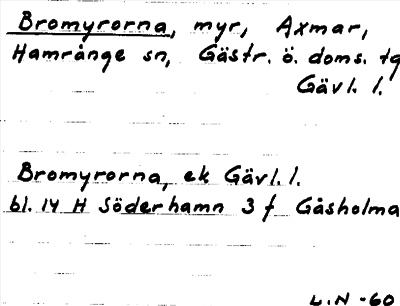 Bromyrorna, myr, Axmar,
Hamrånge sn, Gästr. ö. doms. tg
Gävl. l.
Bromyrorna, ek Gävl. l.
bl. 14 H Söderhamn 3 f Gåsholma
L.N -60